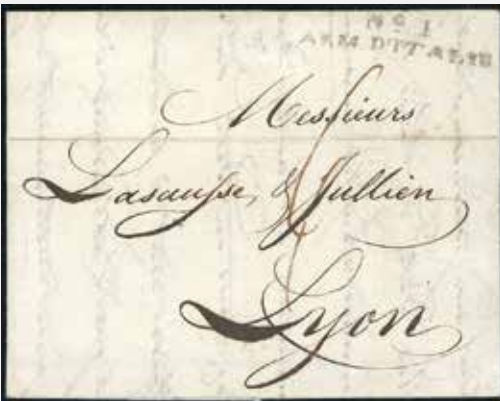 No 1
ARM. D'ITALIE
Messieurs
Lasausse, & Jullien
Lyon